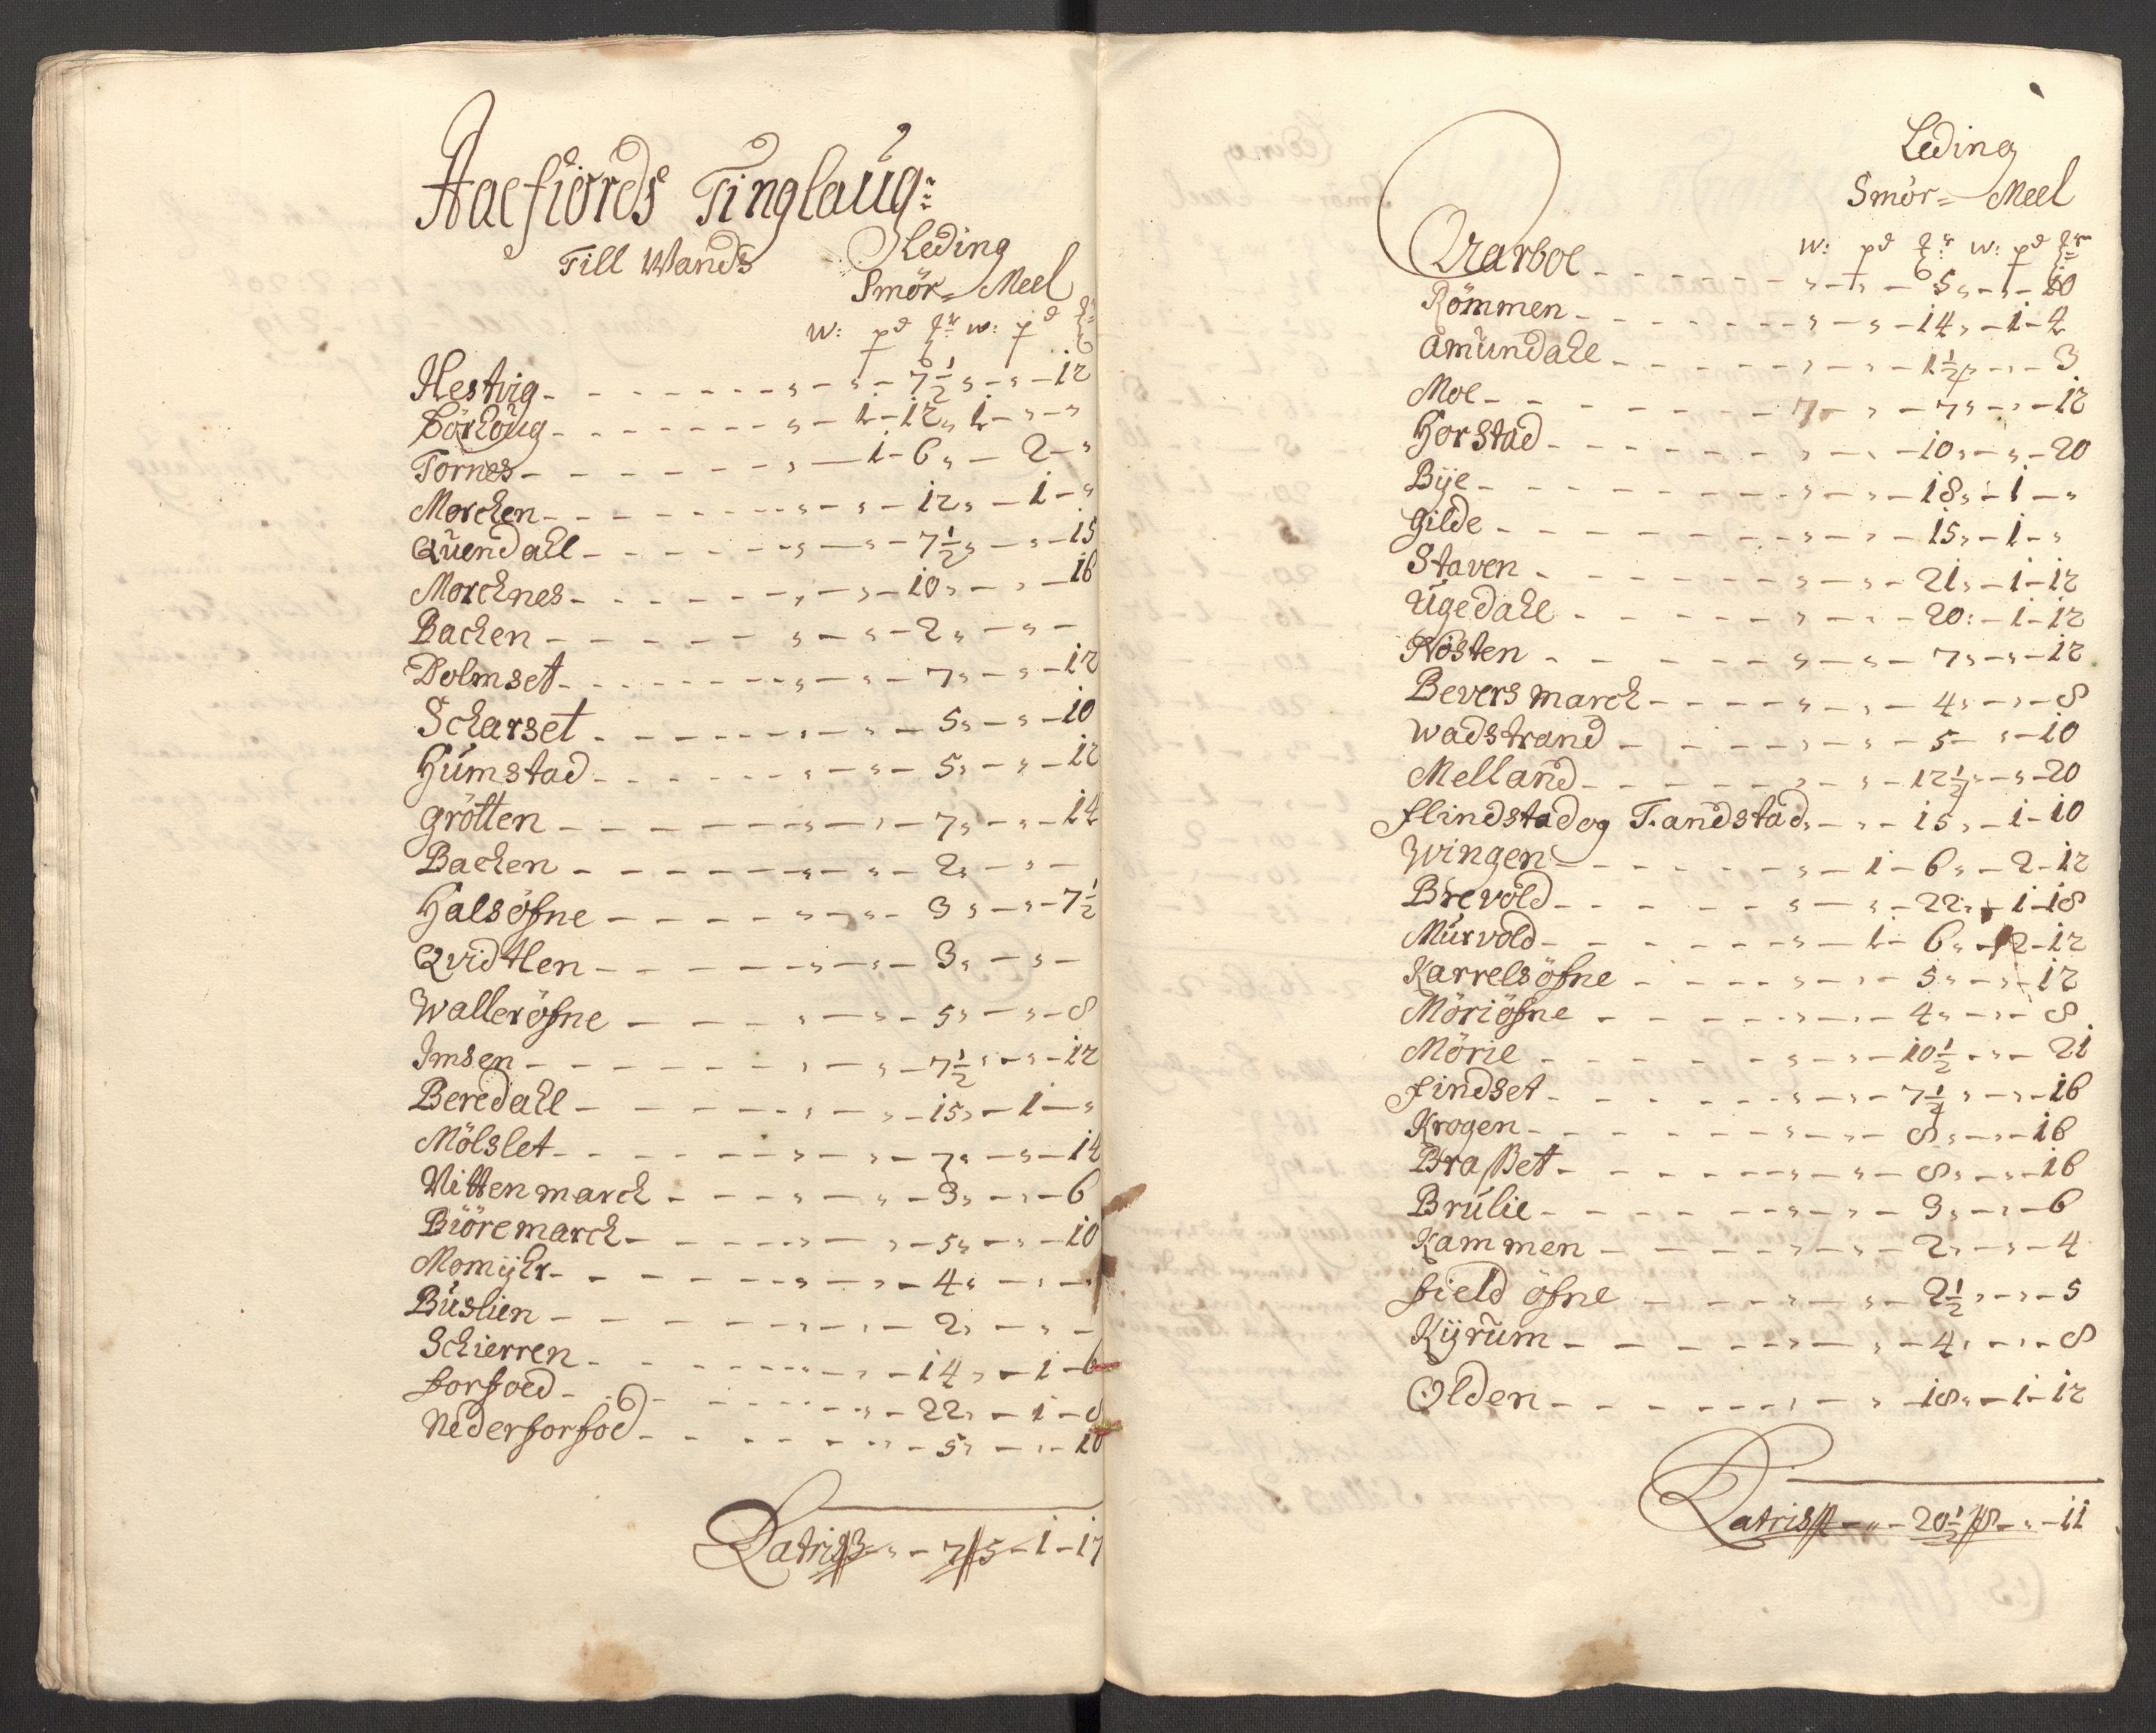 Aaefiords Tinglaug:
Till Wands Leding
Smör = Meel
W: pd W: pd
Hestvig - - - - - - - „ - „ - 7½ „ - „ - 12
Börhoug - - - - - - - „ - 1 - 12 „ 1 - „ - „
Tornes - - - - - - - „ - 1 - 6 „ - 2 - „
Morchen - - - - - - - „ - „ - 12 „ - 1 - „
Quendall - - - - - - „ - „ - 7½ „ - „ - 15
Morchnes - - - - - - „ - „ - 10 „ - „ - 16
Bachen - - - - - - „ - „ - 2 „ - „ -
Dolmset - - - - - - „ - „ - 7 „ - „ - 12
Scharset - - - - - - „ - „ - 5 „ - „ - 10
Humstad - - - - - - „ - „ - 5 „ - „ - 12
Grötten - - - - - - „ - „ - 7 „ - „ - 14
Bachen - - - - - - „ - „ - 2 „ - „ -
Halsöfne - - - - - „ - „ - 3 „ - „ - 7½
Qvidtlen - - - - - „ - „ - 3 „ - „ -
Walleröfne - - - - „ - „ - 5 „ - „ - 8
Imsen - - - - - - - „ - „ - 7½ „ - „ - 12
Beredahl - - - - - - „ - „ - 15 „ - 1 - „
Mölslet - - - - - - „ - „ - 7 „ - „ - 14
Nittenmarch - - - - „ - „ - 3 „ - „ - 6
Biöremarch - - - - - „ - „ - 5 „ - „ - 10
Momyhr - - - - - - „ - „ - 4 „ - „ -
Buslien - - - - - - „ - „ - 2 „ - „ -
Schierren - - - - - - „ - „ - 14 „ - 1 - 6
Forfoed - - - - - - „ - 22 „ - 1 - 8
Nederforfod - - - - - „ - 5 „ - „ - 10
Latris - „ - 7 5 - 1 - 17
Leding
Smör = Meel
W: pd W: pd
Aarboe - - - - - „ - „ - 5 „ - „ - 10
Römmen - - - - - - „ - „ - 14 „ - 1 - 4
Amundahl - - - - - „ - „ - 1½ „ - „ - 3
Moe - - - - - - - „ - 7 „ - „ - 12
Horstad - - - - - - „ - „ - 10 „ - „ - 20
Bÿe - - - - - - - „ - „ - 18 „ - 1 - „
Gilde - - - - - - - „ - „ - 15 „ - 1 - „
Staven - - - - - - „ - „ - 21 „ - 1 - 12
Ugedahl - - - - - „ - „ - 20 : - 1 - 12
Nösten - - - - - - „ - „ - 7 „ - „ - 12
Beversmarch - - - - „ - „ - 4 „ - „ - 8
Wadstrand - - - - „ - „ - 5 - „ - 10
Melland - - - - - „ - „ - 12½ „ - „ - 20
Flindstad og Tandstad „ - „ - 15 „ - 1 - 10
Wingen - - - - - - „ - 1 - 6 „ - 2 - 12
Brevold - - - - - - „ - „ - 22 „ - 1 - 18
Murvold - - - - - - „ - 1 - 6 „ - 2 - 12
Karrelsöfne - - - - „ - „ - 5 „ - „ - 12
Möriöfne - - - - - „ - „ - 4 „ - „ - 8
Mörie - - - - - - „ - „ - 10½ „ - „ - 21
Findset - - - - - - „ - „ - 7½ „ - „ - 16
Krogen - - - - - - „ - „ - 8 „ - „ - 16
Braßet - - - - - - „ - „ - 8 „ - „ - 16
Brulie - - - - - - „ - „ - 3 „ - „ - 6
Kammen - - - - - „ - „ - 2 „ - „ - 4
Field öfne - - - - „ - „ - 2½ „ - „ - 5
Kÿrum - - - - - - „ - „ - 4 „ - „ - 8
Olden - - - - - - „ - „ - 18 „ - 1 - 12
Latris - „ - 20½ 8 - „ - 11